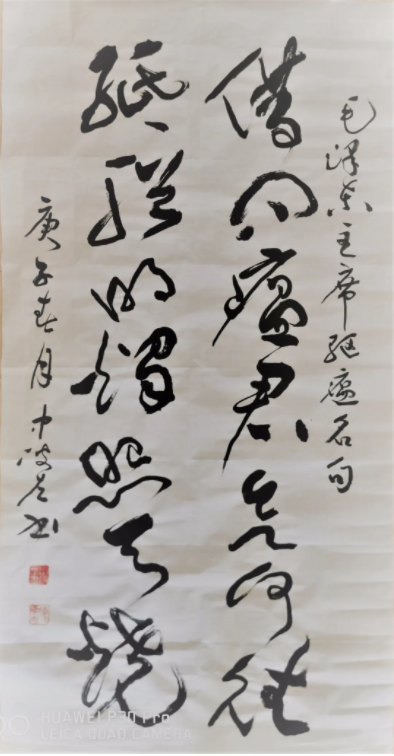 毛泽东主席驱瘟名句
借问瘟君欲何往
纸船明烛照天烧
庚子春月
HUAWEI P30 Pro
LEICA QUAD CAMERA